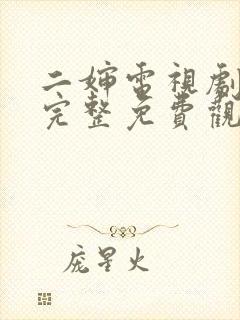 二嬸電視劇
完整免費觀
庞星火